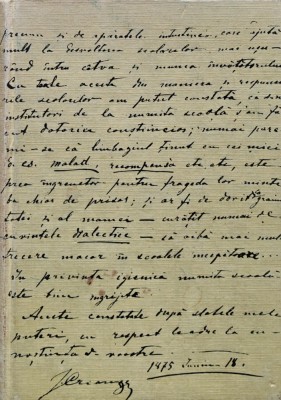 precum și de aparatele intuitive, care ajută
mult la desvoltarea școlarilor mai ușu-
rând întru câtva și munca învățătorului
Cu toate aceste din manuera și respunsu-
rile școlarilor am putut constata, că d-nii
institutori de la numita scoală și-au fă-
cut datoria conștiincios; numai pare
mi-se că limbagiul ținut cu cei mici
de es. malad, recompensa etc. etc., este
prea ingreuetor pentru frageda lor minte
ba chiar de prisos; și ar fi de dorit
tatei și al mamei — curățit numai de
cuvintele dialectice — să aibă mai multă
trecere macar în scoalele incepătoare.
In privința igienica numita scoală
este bine ingrijită.
Aceste constatate după slabele mele
puteri, cu respect le adre la cu-
noștiința d. voastre.
1875 Iunie 18.
I Creangă